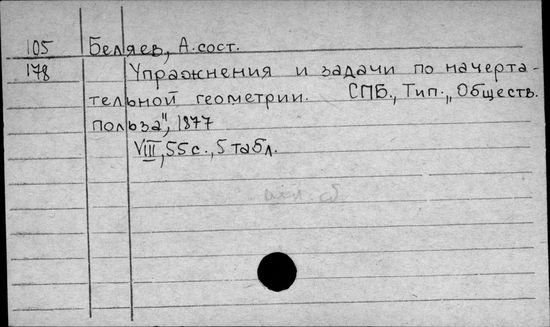 105 Беляев, А. сост.
178 Упражнения и задачи по начерта-
тельной геометрии. СПБ., Тип. „Обществ.
польза", 1877
VIII, 55 с., 5 табл.